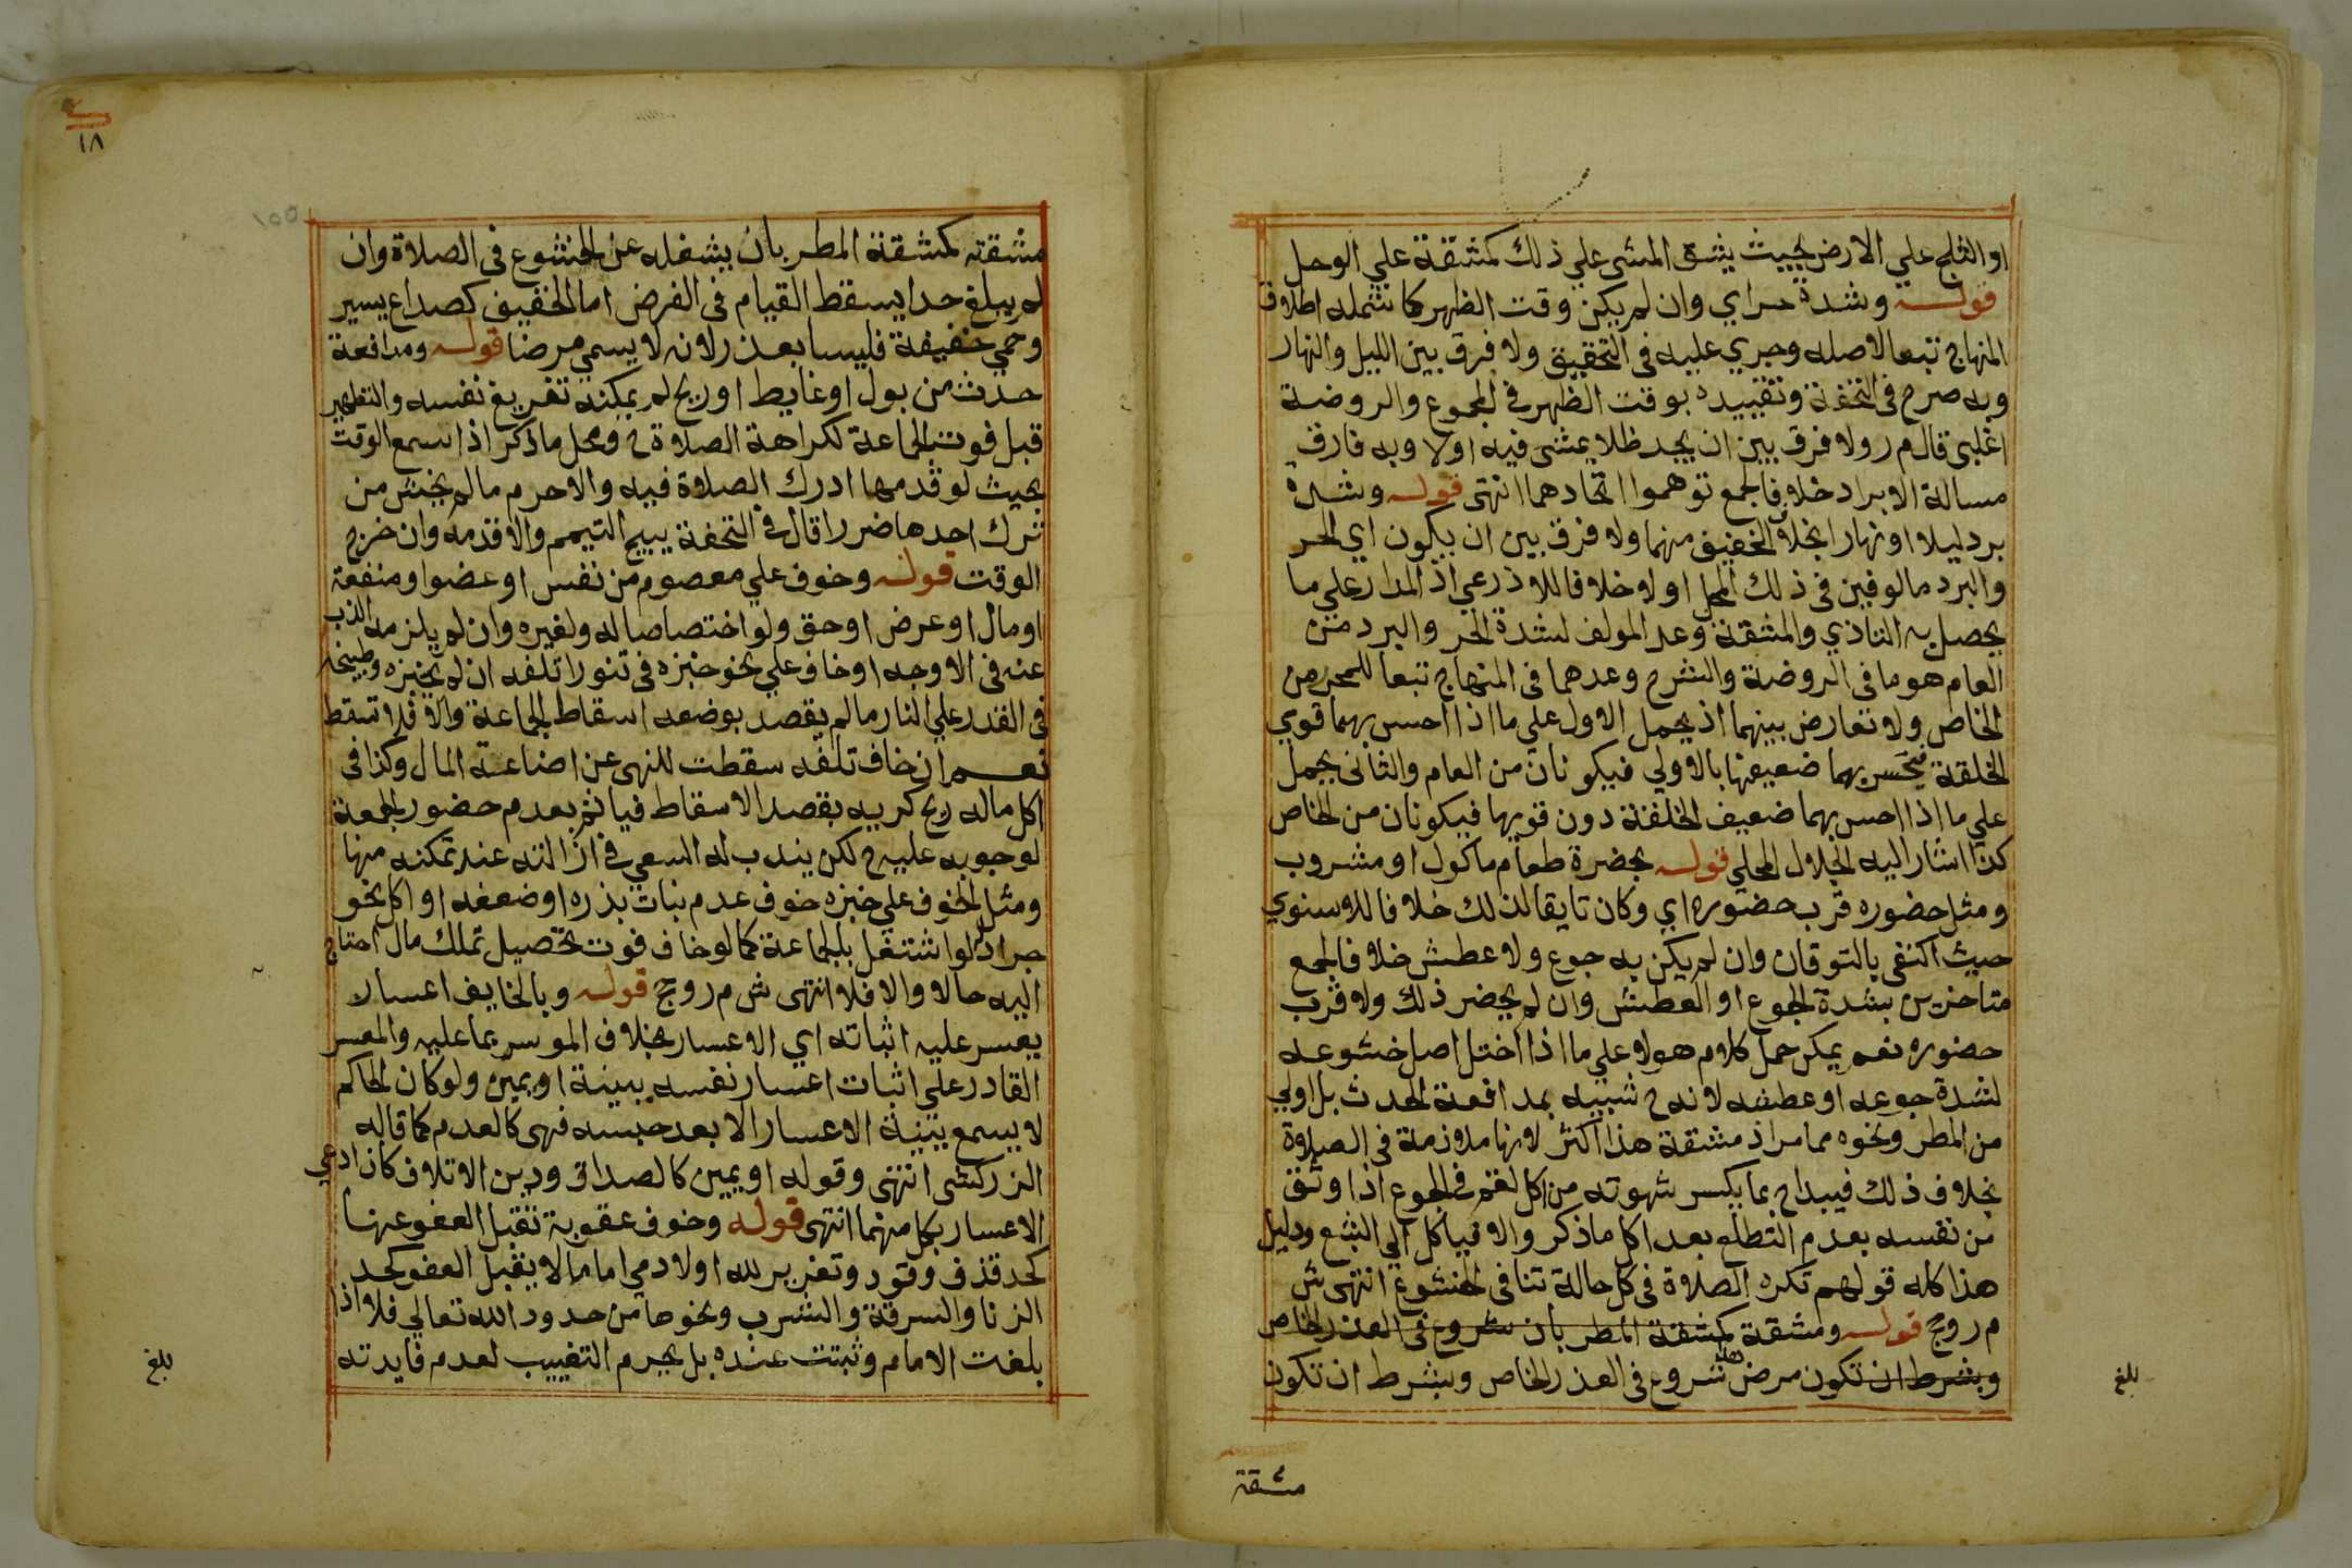 او الثلج علي الارض بحيث يشق المشى علي ذلك كمشقة علي الوحل
قوله وشدة حراي وان لم يكن وقت الظهر كما شمله اطلاق
المنهاج تبعا لاصله وجري عليه فى التحقيق ولا فرق بين الليل والنهار
وبه صرح فى التحفة وتقييده بوقت الظهر في المجموع والروضة
اغلبى قال م ر ولا فرق بين ان يجد ظلا يمشى فيه اولا وبه فارق
مسالة الابراد خلافا لجمع توهموا اتحادهما انتهى قوله وشدة
برد ليلا او نهارا بخلاف الخفيف منهما ولا فرق بين ان يكون اي الحر
والبرد مالوفين فى ذلك المحل اولا خلافا للاذرعي اذ المدار علي ما
يحصل به التاذي والمشقة وعد المولف لشدة الحر والبرد من
العام هو ما فى الروضة والشرح وعدهما فى المنهاج تبعا للمحرر من
الخاص ولا تعارض بينهما اذ يحمل الاول علي ما اذا احس بهما قوي
الخلقة فيحس بهما ضعيفها بالاولي فيكونان من العام والثانى يحمل
علي ما اذا احس بهما ضعيف الخلقة دون قويها فيكونان من الخاص
كذا اشار اليه الجلال المحلي قوله بحضرة طعام ماكول او مشروب
ومثل حضوره قرب حضوره اي وكان تايقا لذلك خلافا للاسنوي
حيث اكتفى بالتوقان وان لم يكن به جوع ولا عطش خلافا لجمع
متاخرين بشدة الجوع او العطش وان لم يحضر ذلك ولا قرب
حضوره نعم يمكن حمل كلام هولا علي ما اذا اختل اصل خشوعه
لشدة جوعه او عطفه لانه ح شبيه بمدافعة الحدث بل اولي
من المطر ونحوه مما مر اذ مشقة هذا اكثر لانها ملازمة فى الصلاة
بخلاف ذلك فيبداح بما يكسر شهوته من اكل لقم فى الجوع اذا وثق
من نفسه بعدم التطلع بعد اكل ما ذكر والا فياكل الي الشبع ودليل
هذا كله قولهم تكره الصلاة فى كل حالة تنافى الخشوع انتهى ش
م ر وحج قوله ومشقة كمشقة المطر بان شروع فى العذر الخاص
وبشرط ان تكون مرض هذا شروع فى العذر الخاص وبشرط ان تكون
بلغ
مشقة
١٨
١٥٥
مشقته كمشقة المطر بان يشغله عن الخشوع فى الصلاة وان
لم يبلغ حدا يسقط القيام فى الفرض اما الخفيف كصداع يسير
وحمي خفيفة فليسا بعذر لانه لا يسمي مرضا قوله ومدافعة
حدث من بول او غايط او ريح لم يمكنه تفريغ نفسه والتطهير
قبل فوت الجماعة لكراهة الصلاة ح ومحل ما ذكر اذا سمع الوقت
بحيث لو قدمها ادرك الصلاة فيه والا حرم ما لم يخش من
ترك احدها ضررا قال فى التحفة يبيح التيمم والا قدمه وان خرج
الوقت قوله وخوف علي معصوم من نفس او عضو او منفعة
او مال او عرض او حق ولو اختصاصا له ولغيره وان لم يلزمه الذب
عنه فى الاوجه او خاف علي نحو خبزه فى تنور اتلفه ان لم يخبزه وطبيخه
فى القدر علي النار ما لم يقصد بوضعه اسقاط الجماعة والا فلا تسقط
نعم ان خاف تلفه سقطت للنهى عن اضاعة المال وكذا فى
اكل ماله ريح كريه بقصد الاسقاط فياثم بعدم حضور الجمعة
لوجوبه عليه ح لكن يندب له السعي فى ازالته عند تمكنه منها
ومثل الخوف علي خبزه خوف عدم نبات بذره او ضعفه او اكل نحو
جراد لو اشتغل بالجماعة كما لو خاف فوت تحصيل تملك مال احتاج
اليه حالا والا فلا انتهى ش م ر وحج قوله وبالخايف اعسارا
يعسر عليه اثباته اي الاعسار بخلاف الموسر بما عليه والمعسر
القادر علي اثبات اعسار نفسه ببينة او يمين ولو كان الحاكم
لا يسمع بينة الاعسار الا بعد حبسه فهى كالعدم كما قاله
الزركشى انتهى وقوله او يمين كالصداق ودين الاتلاف كان ادعي
الاعسار بكل منهما انتهى قوله وخوف عقوبة تقبل العفو عنها
كحد قذف وقود وتعزير لله او لادمي اما ما لا يقبل العفو كحد
الزنا والسرقة والشرب ونحوها من حدود الله تعالي فلا اذا
بلغت الامام وثبتت عنده بل يحرم التغييب لعدم فايدته
بلغ